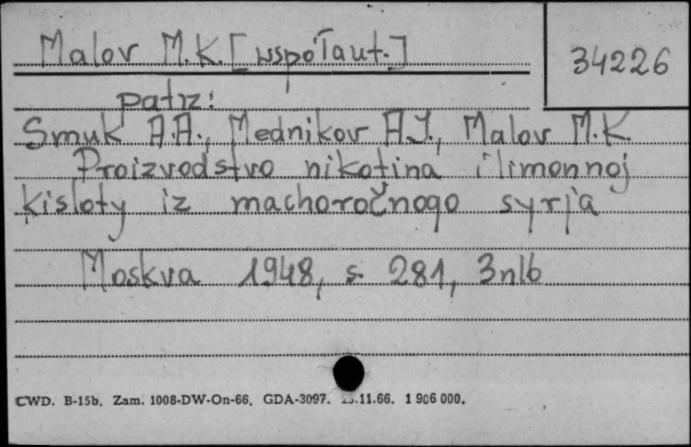 Malov M.K. [współaut.]
34226
patrz:
Smuk A.A., Mednikov A.J., Malov M.K.
Proizvodstvo nikotina i limonnoj
kisloty iz machoročnogo syrja
Moskva 1948, s. 281, 3nlb
CWD. B-15b. Zam. 1008-DW-On-66. GDA-3097. .11.66. 1 906 000.